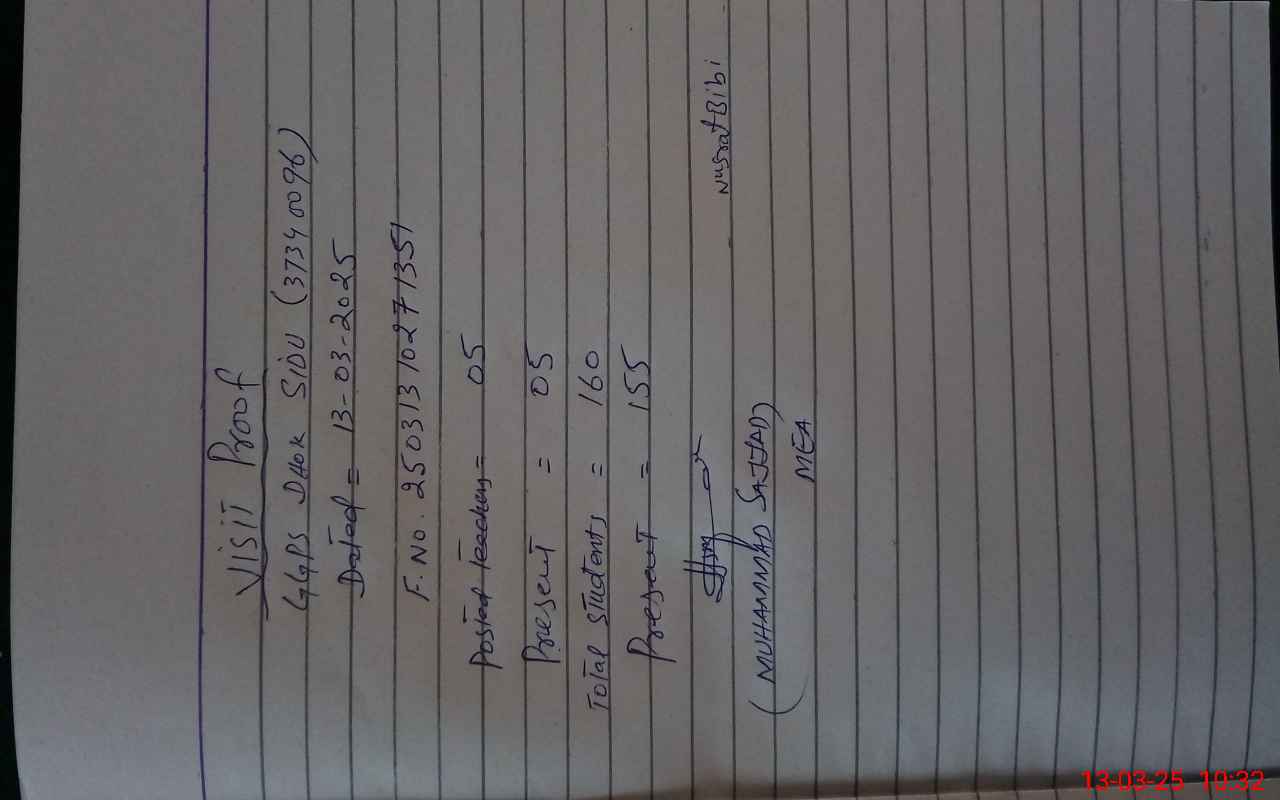 VISIT Proof
GGPS DHOK SIDU (37340096)
Dated = 13-03-2025
F.No. 250313102713​51
Posted teachers = 05
Present = 05
Total students = 160
Present = 155
Nusrat Bibi
(MUHAMMAD SAJJAD)
MEA
13-03-25 10:32